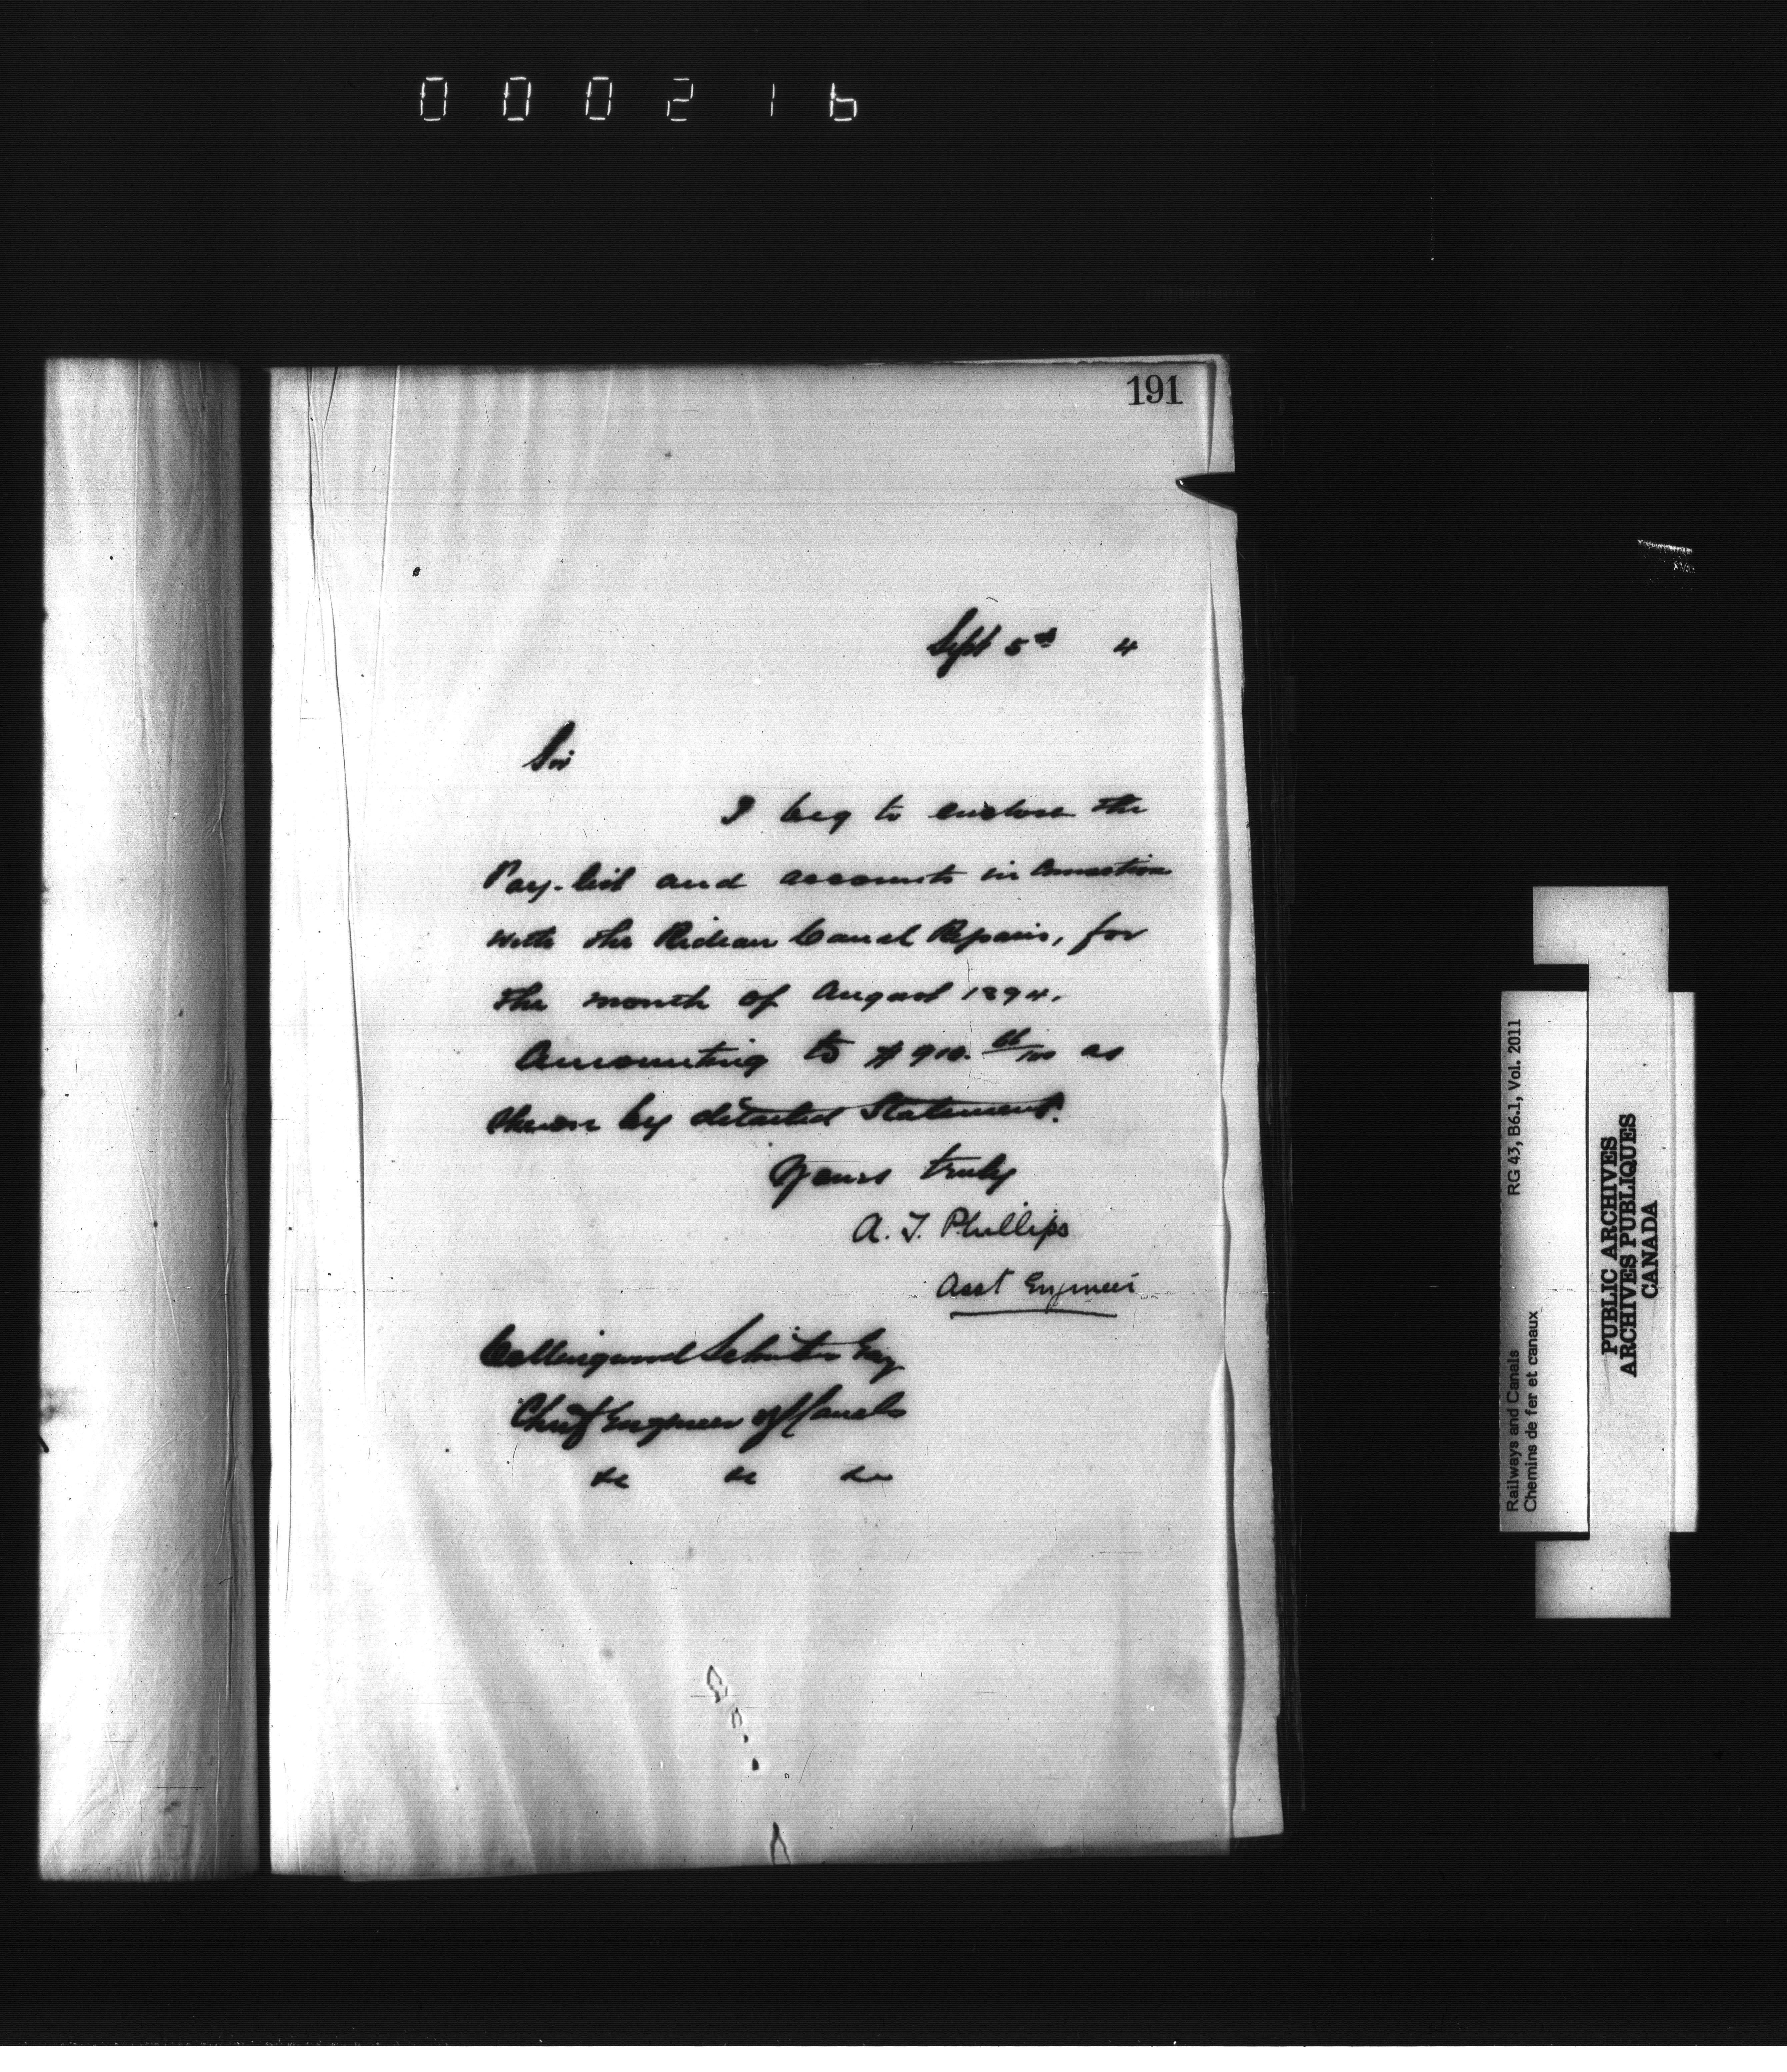 000216
191
Sept 5th 4
Sir
I beg to enclose the
Pay-list and accounts in Connection
with the Rideau Canal Repairs, for
the month of August 1894.
Amounting to $910. 66/100 as
shewn by detailed Statement.
Yours truly
A. T. Phillips
Asst Engineer
Collingwood Schreiber Esq
Chief Engineer of Canals
&c &c &c
Railways and Canals RG 43, B6.1, Vol. 2011
Chemins de fer et canaux
PUBLIC ARCHIVES
ARCHIVES PUBLIQUES
CANADA